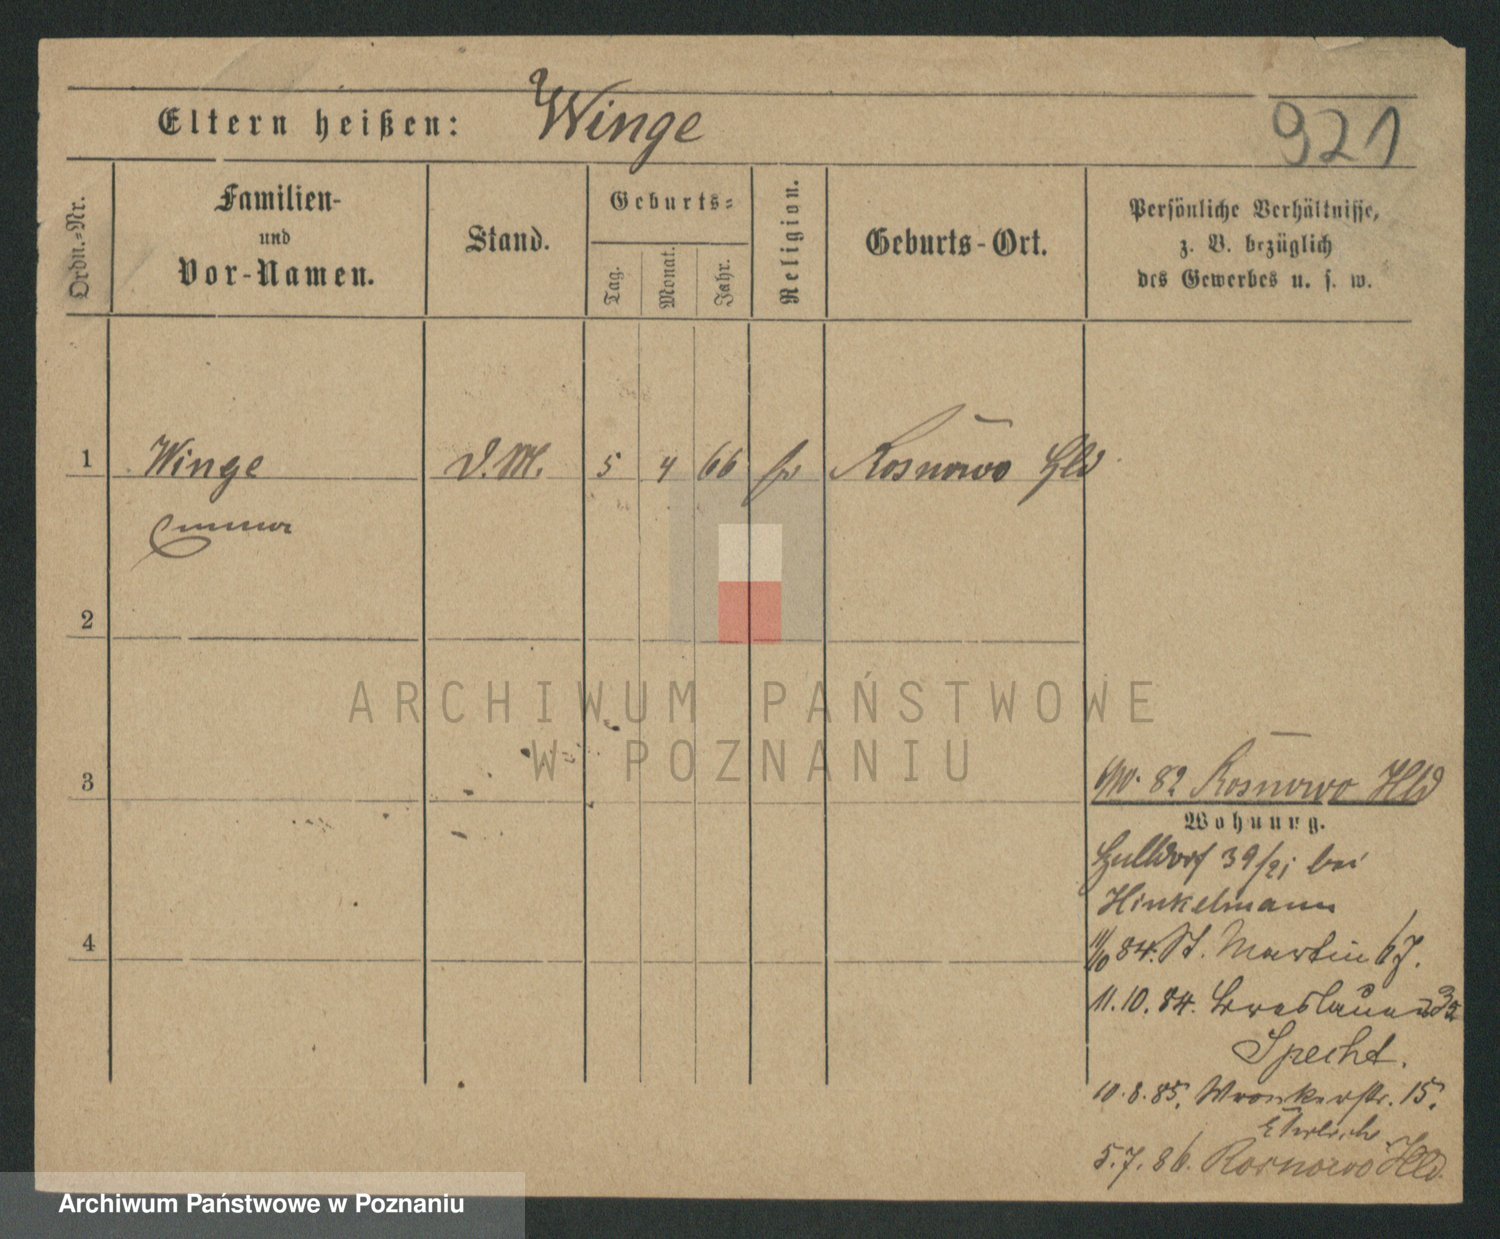 Eltern heißen: Winge
921
Ordn.-Nr.
Familien-
und
Vor-Namen.
Stand.
Geburts-
Tag.
Monat.
Jahr.
Religion.
Geburts-Ort.
Persönliche Verhältnisse,
z. B. bezüglich
des Gewerbes u. s. w.
1 Winge D.M. 5 4 66 Rosnowo Hld
Emma
2
3
4
ARCHIWUM PAŃSTWOWE
W POZNANIU
82 Rosnowo Hld
Wohnung.
39/21 bei
Hinkelmann
11/10 84. St. Martin 67.
11.10.84. Breslauer 32
Specht.
10.8.85. Wronkerstr. 15.
5.7.86. Rosnowo Hld.
Archiwum Państwowe w Poznaniu